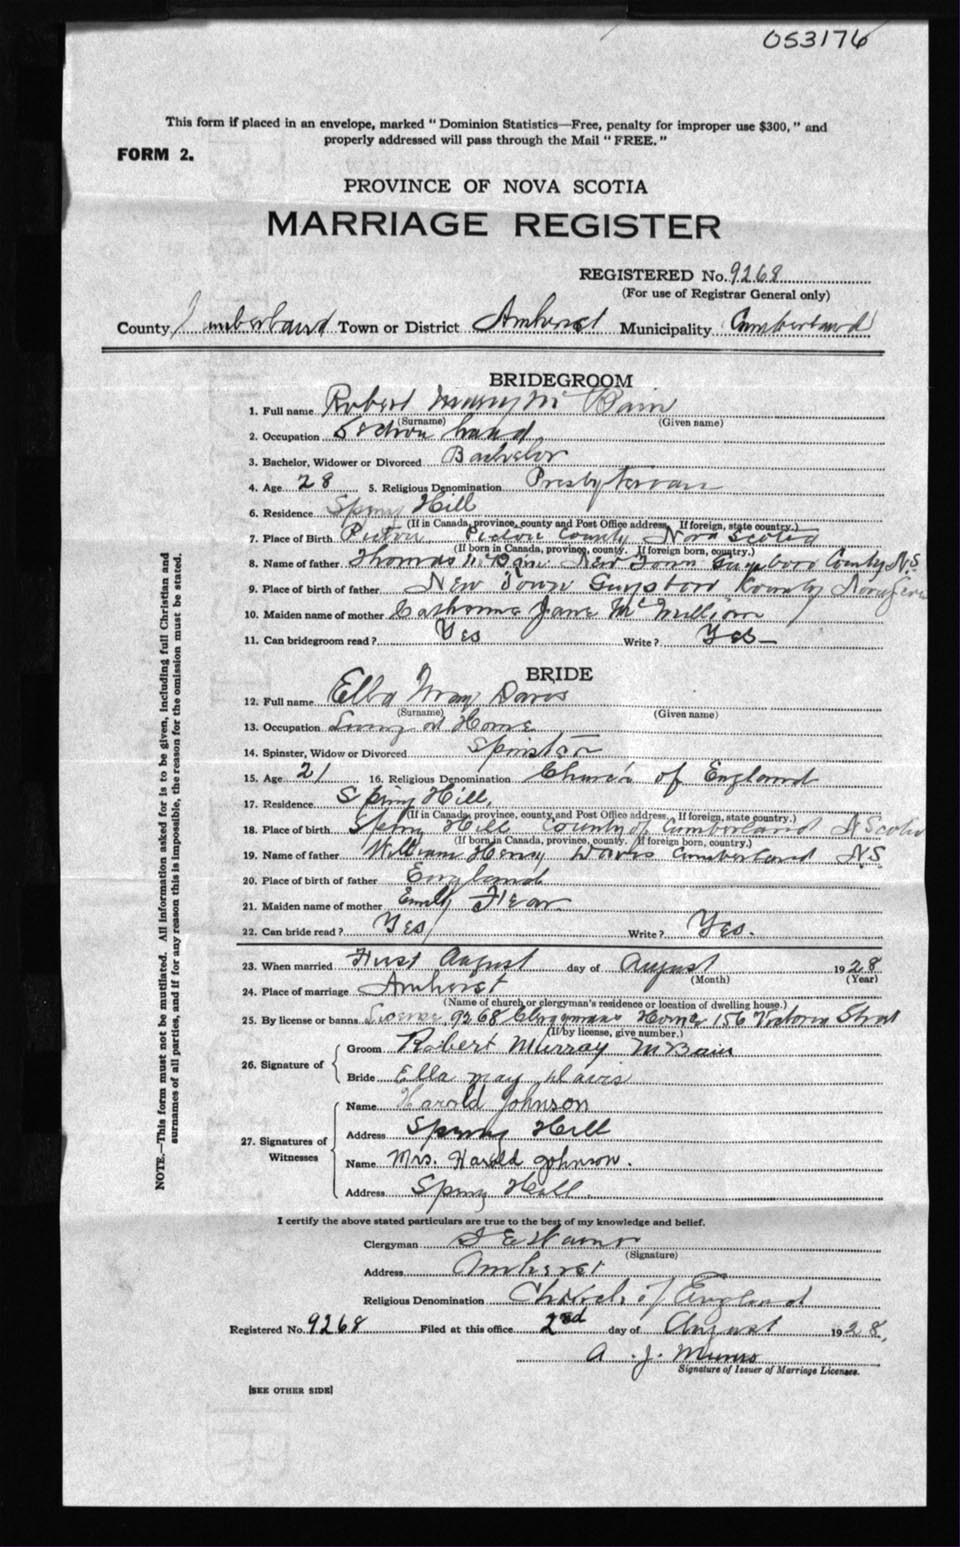 053176
This form if placed in an envelope, marked "Dominion Statistics—Free, penalty for improper use $300," and
properly addressed will pass through the Mail "FREE."
FORM 2.
PROVINCE OF NOVA SCOTIA
MARRIAGE REGISTER
REGISTERED No. 9268
(For use of Registrar General only)
County Cumberland Town or District Amherst Municipality Cumberland
BRIDEGROOM
1. Full name Robert Murray McBain
(Surname) (Given name)
2. Occupation Section hand
3. Bachelor, Widower or Divorced Bachelor
4. Age 28 5. Religious Denomination Presbyterian
6. Residence Spring Hill
(If in Canada, province, county and Post Office address. If foreign, state country.)
7. Place of Birth Pictou Pictou County Nova Scotia
(If born in Canada, province, county. If foreign born, country.)
8. Name of father Thomas McBain New Town Guysboro County N.S
9. Place of birth of father New Town Guysboro County Nova
10. Maiden name of mother Jane
11. Can bridegroom read? Yes Write? Yes
BRIDE
12. Full name Ella May Davis
(Surname) (Given name)
13. Occupation Living at Home
14. Spinster, Widow or Divorced Spinster
15. Age 21 16. Religious Denomination Church of England
17. Residence Spring Hill,
(If in Canada, province, county and Post Office address. If foreign, state country.)
18. Place of birth Spring Hill County of Cumberland N Scotia
(If born in Canada, province, county. If foreign born, country.)
19. Name of father William Henry Davis Cumberland N.S
20. Place of birth of father England
21. Maiden name of mother Emily
22. Can bride read? Yes Write? Yes.
23. When married First August day of August 1928
(Month) (Year)
24. Place of marriage Amherst
(Name of church or clergyman's residence or location of dwelling house.)
25. By license or banns License 9268 Clergymans Home 156 Victoria Street
(If by license, give number.)
26. Signature of
Groom Robert Murray McBain
Bride Ella May Davis
27. Signatures of Witnesses
Name Harold Johnson
Address Spring Hill
Name Mrs. Harold Johnson.
Address Spring Hill.
I certify the above stated particulars are true to the best of my knowledge and belief.
Clergyman
(Signature)
Address Amherst
Religious Denomination Church of England
Registered No. 9268 Filed at this office 2nd day of August 1928.
A. J. Munro
Signature of Issuer of Marriage Licenses.
[SEE OTHER SIDE]
NOTE.—This form must not be mutilated. All information asked for is to be given, including full Christian and
surnames of all parties, and if for any reason this is impossible, the reason for the omission must be stated.